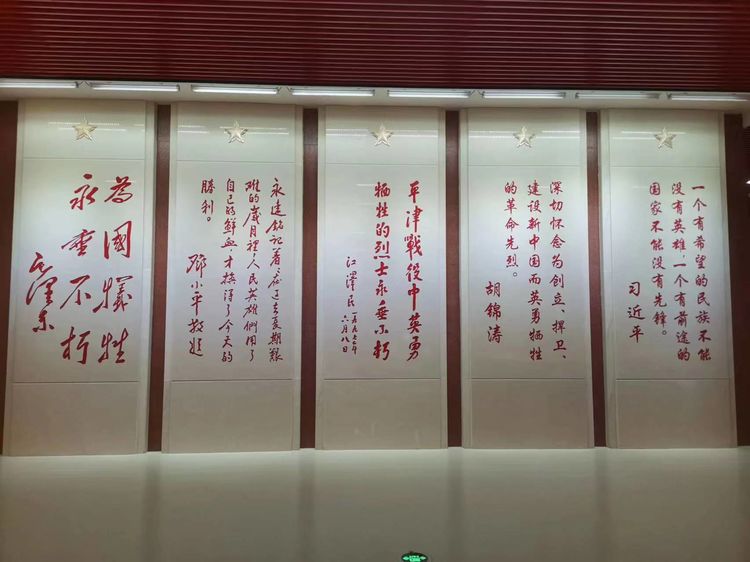 為國犧牲
永垂不朽
毛澤东
永远銘記着,在过去長期艱
难的歲月裡,人民英雄們用了
自己的鲜血,才换得了今天的
勝利。
鄧小平敬题
平津戰役中英勇
牺牲的烈士永垂不朽
江澤民 一九九七年
六月八日
深切怀念为创立、捍卫、
建设新中国而英勇牺牲
的革命先烈。
胡錦涛
一个有希望的民族不能
没有英雄,一个有前途的
国家不能没有先锋。
习近平